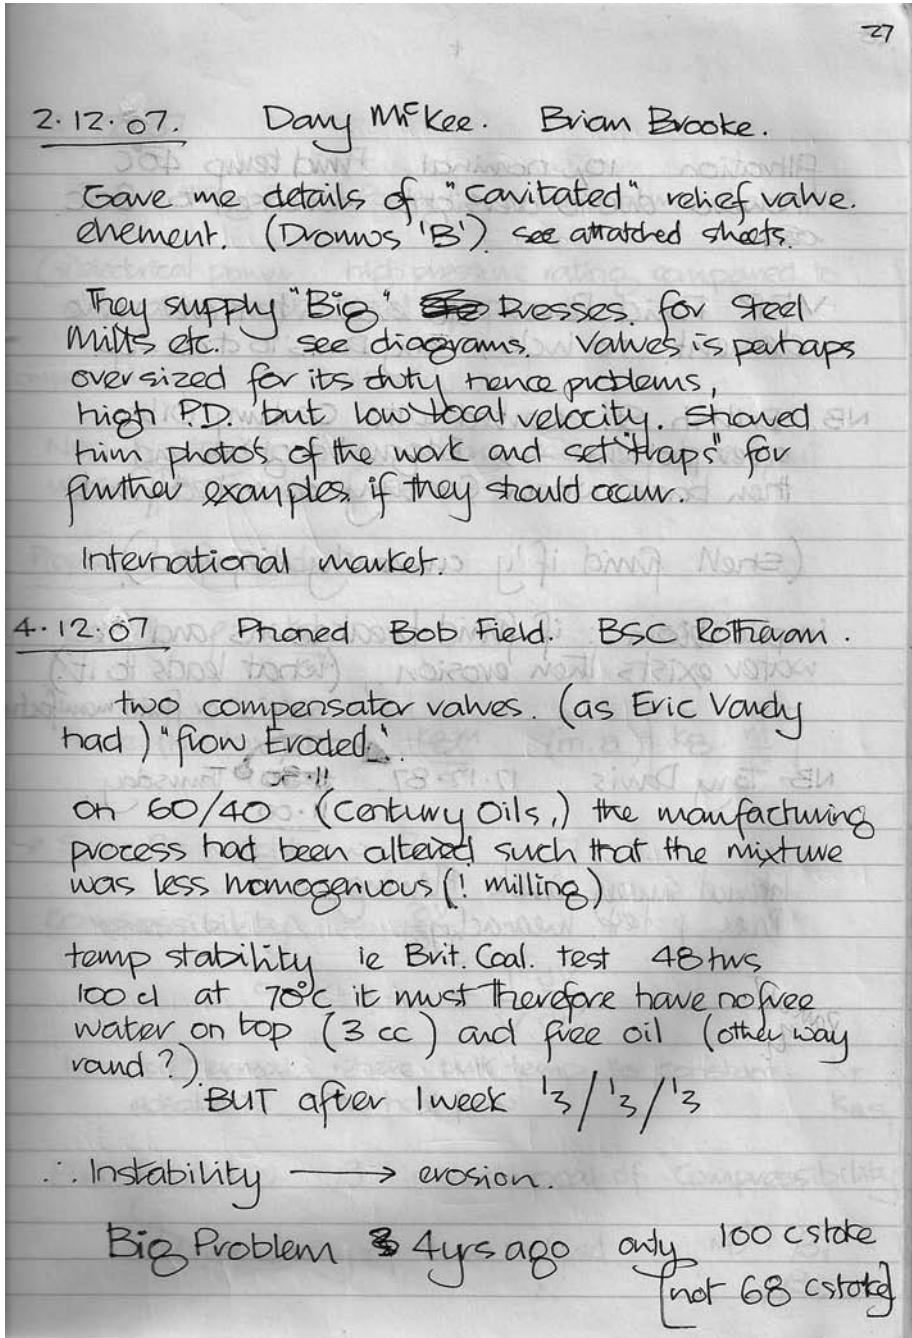 27
2.12.07. Davy McKee. Brian Brooke.
Gave me details of "cavitated" relief valve.
enement. (Dronws 'B') see attatched sheets.
They supply "Big" Presses for Steel
Mills etc. see diagrams. Valves is perhaps
oversized for its duty hence problems,
high P.D. but low local velocity. Showed
him photo's of the work and set "traps" for
further examples if they should occur.
International market.
4.12.07 Phoned Bob Field. BSC Rotheram.
two compensator valves. (as Eric Vandy
had) "flow Eroded."
or !!
on 60/40 (Century Oils,) the manfacturing
process had been altered such that the mixture
was less homogenuous (! milling)
temp stability ie Brit. Coal. test 48 hrs
100 cl at 70°c it must therefore have no free
water on top (3 cc) and free oil (othey way
round ?).
BUT after 1 week 1/3 / 1/3 / 1/3
∴ Instability → erosion.
Big Problem 4yrs ago only 100 cstoke
[not 68 cstoke]